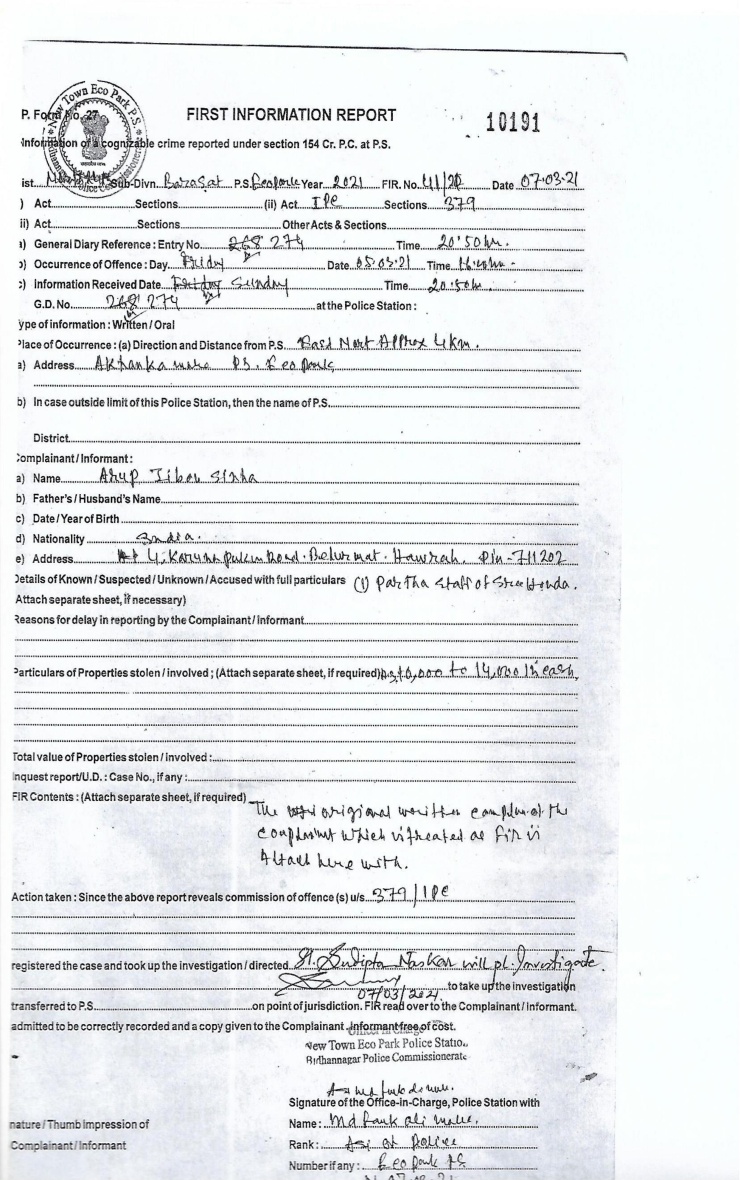 New Town Eco Park P.S.
Bidhannagar Police Commissionerate
P. Form No. 27
FIRST INFORMATION REPORT
10191
Information of a cognizable crime reported under section 154 Cr. P.C. at P.S.
ist. Sub-Divn. Barasat P.S. Ecopark Year 2021 FIR. No. 41/21 Date 07-03-21
) Act Sections (ii) Act IPC Sections 379
ii) Act Sections Other Acts & Sections
) General Diary Reference : Entry No. 268 274 Time 20'50 hr.
) Occurrence of Offence : Day Friday Date 05-03-21 Time
:) Information Received Date Friday Sunday Time 20.50 hr
G.D. No. 268 274 at the Police Station :
ype of information : Written / Oral
Place of Occurrence : (a) Direction and Distance from P.S. East Nort Approx 4 km.
a) Address Akhanka P.S. Eco park
b) In case outside limit of this Police Station, then the name of P.S.
District
Complainant / Informant :
a) Name Arup Sinha
b) Father's / Husband's Name
c) Date / Year of Birth
d) Nationality India.
e) Address 4, Karuna Road. Belurmat. Hawrah. Pin-711202
Details of Known / Suspected / Unknown / Accused with full particulars (1) Partha staff of Honda.
Attach separate sheet, if necessary)
Reasons for delay in reporting by the Complainant / Informant
Particulars of Properties stolen / involved ; (Attach separate sheet, if required) 10,000 to 14,000 in cash
Total value of Properties stolen / involved :
nquest report/U.D. : Case No., if any :
FIR Contents : (Attach separate sheet, if required) The origional written of the
which is treated as FIR is
Attach here with.
Action taken : Since the above report reveals commission of offence (s) u/s. 379/IPC
registered the case and took up the investigation / directed SI. Sudipta Naskar will pl. Investigate.
07/03/2021 to take up the investigation
transferred to P.S. on point of jurisdiction. FIR read over to the Complainant / Informant.
admitted to be correctly recorded and a copy given to the Complainant Informant free of cost.
Officer in Charge
New Town Eco Park Police Station
Bidhannagar Police Commissionerate
Signature of the Officer-in-Charge, Police Station with
nature / Thumb Impression of Name : Md Ali
Complainant / Informant Rank : ASI of Police
Number if any : Eco park PS